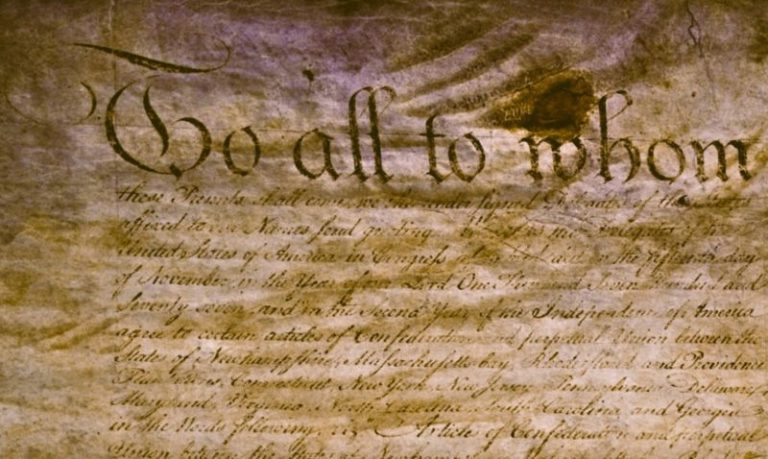 To all to whom
these Presents shall come, we the under signed Delegates of the States
affixed to our Names send greeting. Whereas the Delegates of the
United States of America in Congress assembled did on the fifteenth day
of November in the Year of our Lord One Thousand Seven Hundred and
Seventy seven, and in the Second Year of the Independence of America
agree to certain articles of Confederation and perpetual Union between the
States of Newhampshire, Massachusetts-bay, Rhodeisland and Providence
Plantations, Connecticut, New York, New Jersey, Pennsylvania, Delaware,
Maryland, Virginia, North-Carolina, South-Carolina, and Georgia
in the Words following, viz. Articles of Confederation and perpetual
Union between the States of